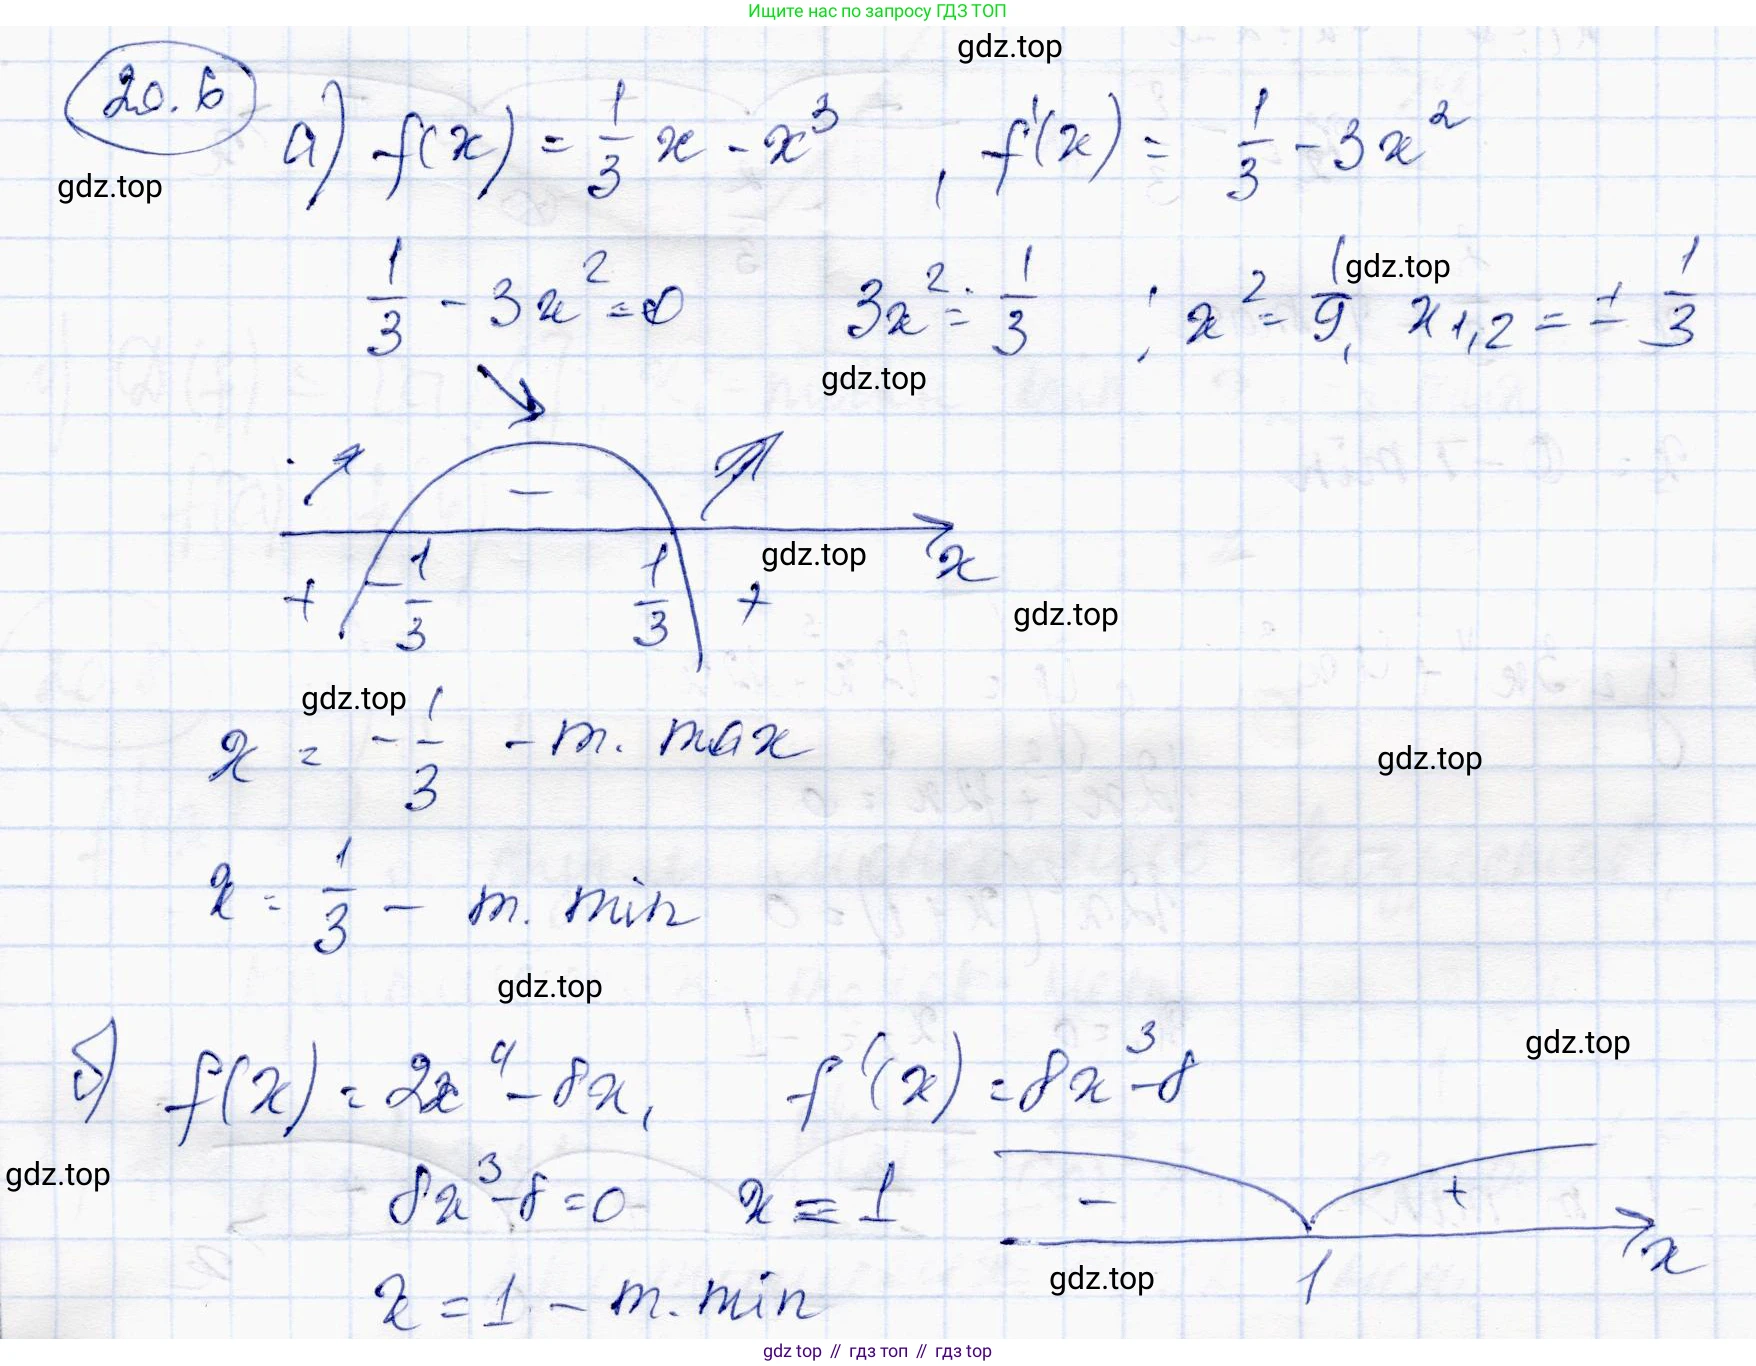 Ищите нас по запросу ГДЗ ТОП
gdz.top
20.6
а) f(x) = 1/3 x - x³, f'(x) = 1/3 - 3x²
gdz.top
1/3 - 3x² = 0 3x² = 1/3 ; x² = 1/9, x₁,₂ = ± 1/3
gdz.top
gdz.top
-
gdz.top
x
+ -1/3 1/3 +
gdz.top
gdz.top
x = -1/3 - т. max
gdz.top
x = 1/3 - т. min
gdz.top
gdz.top
б) f(x) = 2x⁴ - 8x, f'(x) = 8x³ - 8
gdz.top
8x³ - 8 = 0 x = 1
- +
x
gdz.top
1
x = 1 - т. min
gdz.top // гдз топ // гдз top